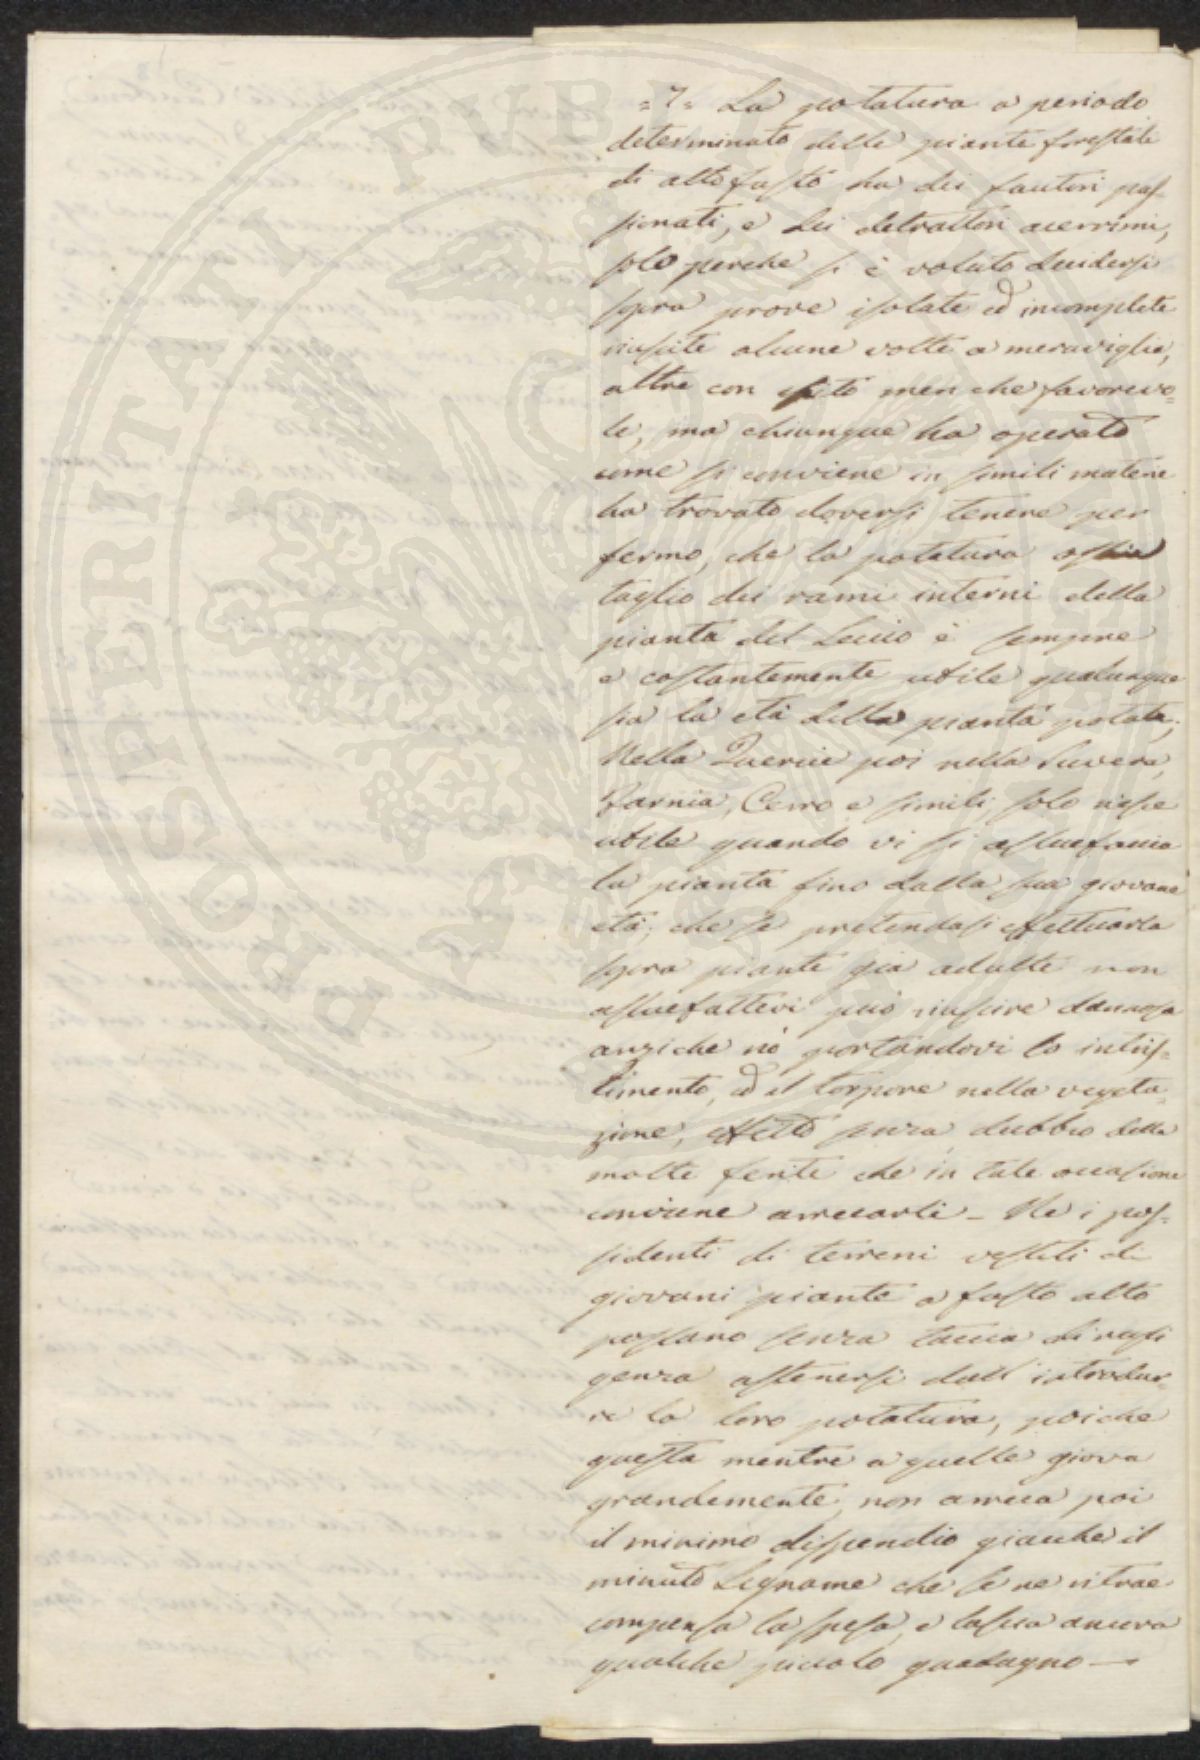 =7= La potatura a periodo
determinato delle piante forestali
di alto fusto ha dei fautori pas-
sionati, e dei detrattori acerrimi,
solo perche si è voluto decidersi
sopra prove isolate ed incomplete
riuscite alcune volte a meraviglia,
altre con esito men che favorevo=
le, ma chiunque ha operato
come si conviene in simili materie
ha trovato doversi tenere per
fermo, che la potatura ossia
taglio dei rami interni della
pianta del Leccio è sempre
e costantemente utile qualunque
sia la età della pianta potata.
Nella Quercie poi nella Suvera,
Farnia, Cerro e simili, solo riesce
utile quando vi si assuefaccia
la pianta fino dalla sua giovane
età; che se pretendasi effettuarla
sopra piante già adulte non
assuefattevi può riuscire dannosa
anziche nò portandovi lo intris=
timento, ed il torpore nella vegeta=
zione, effetto senza dubbio delle
molte ferite che in tale occasione
conviene arrecarli - Ne i pos=
sidenti di terreni vestiti di
giovani piante a fusto alto
possano senza taccia di negli
genza astenersi dall'introdur=
re la loro potatura, poiche
questa mentre a quelle giova
grandemente, non arreca poi
il minimo dispendio giacche il
minuto Legname che se ne ritrae
compensa la spesa, e lascia ancora
qualche piccolo guadagno —
PROSPERITATI PUBLICAE AUGENDAE